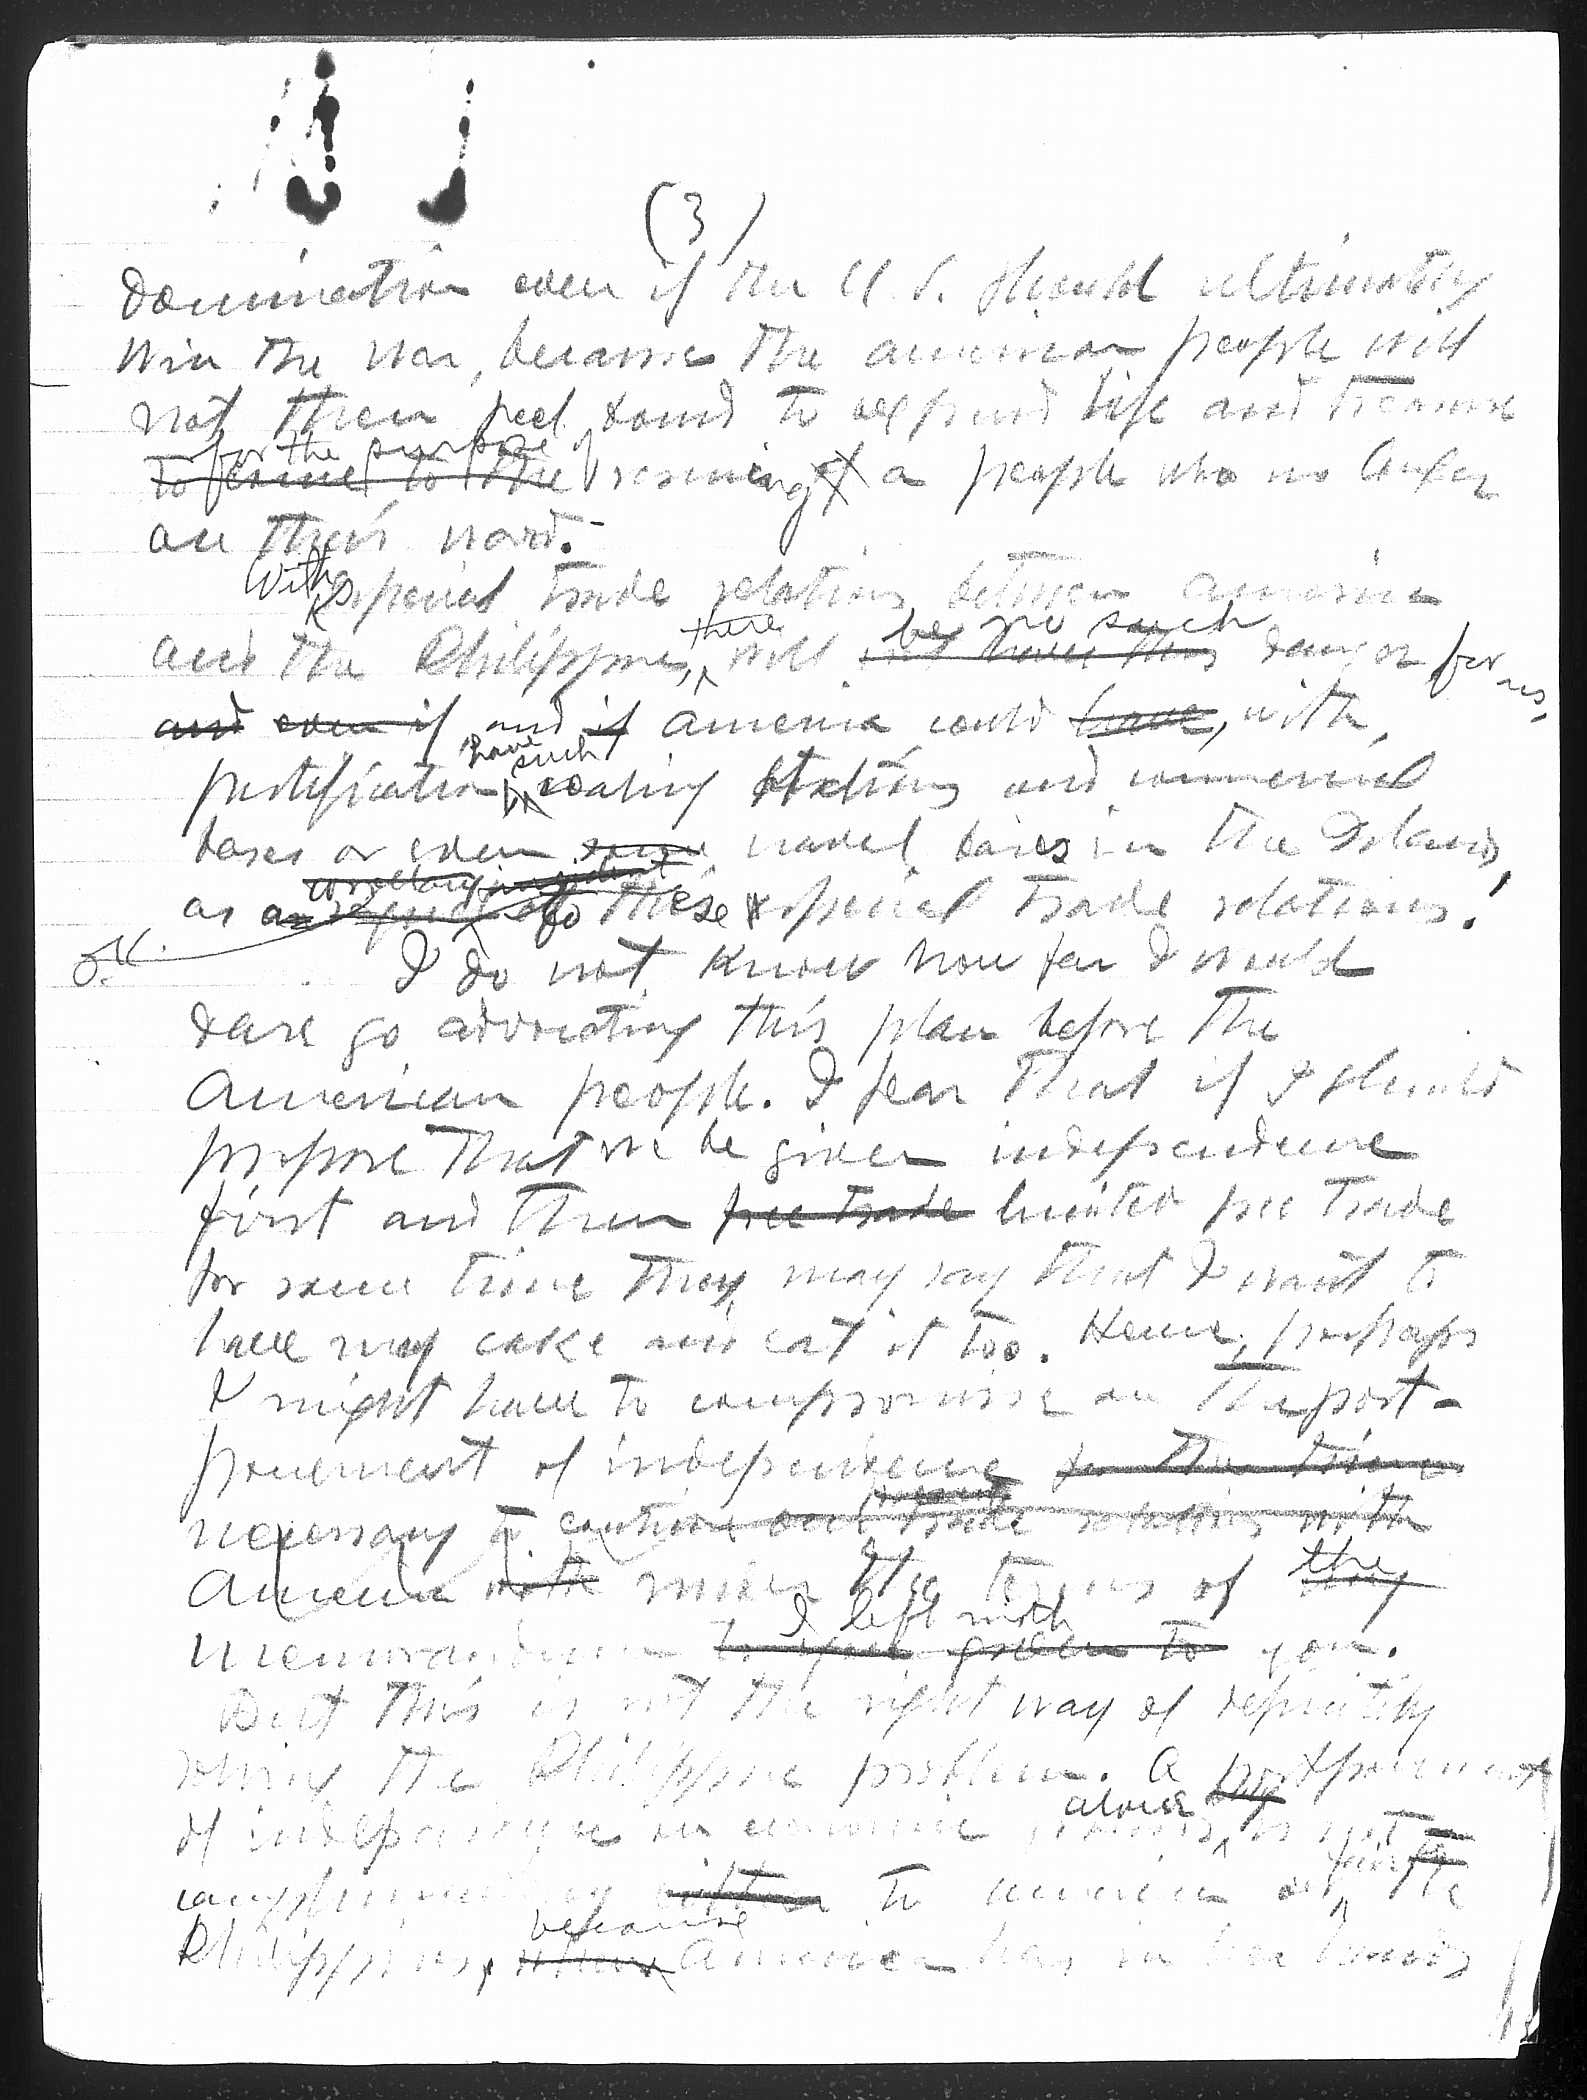 (3)
domination even if the U.S. should ultimately
win the war, because the american people will
not then feel bound to expend life and treasure
for the purpose of
to come to the rescuing of a people who no longer
are their ward.
With special trade relations between america
there be no such
and the Philippines, will danger for us,
and even if and if america could have, with
have such
justification, coaling stations and commercial
bases or even some naval bases in the Islands,
corollary incident
as an to these special trade relations.
O.K.
I do not know how far I would
dare go advocating this plan before the
American people. I fear that if I should
propose that we be given independence
first and then free trade limited free trade
for some time they may say that I want to
have my cake and eat it too. Hence, perhaps
I might have to compromise on the post-
ponement of independence for the time
necessary to continue our trade relations with
America with under the terms of the
I left with
memorandum to you.
But this is not the right way of definitely
solving the Philippine problem. A postponement
of independence on economic grounds is not
alone
complimentary either to america or to the
because
Philippines, when America has in her hands